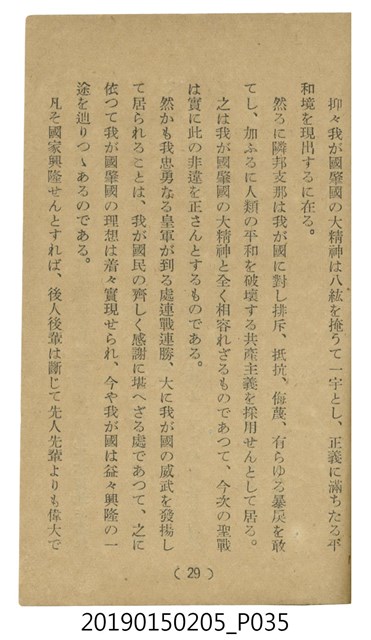 抑々我が國肇國の大精神は八紘を掩うて一宇とし、正義に滿ちたる平
和境を現出するに在る。
然るに隣邦支那は我が國に對し排斥、抵抗、侮蔑、有らゆる暴戾を敢
てし、加ふるに人類の平和を破壞する共產主義を採用せんとして居る。
之は我が國肇國の大精神と全く相容れざるものであつて、今次の聖戰
は實に此の非違を正さんとするものである。
然かも我忠勇なる皇軍が到る處連戰連勝、大に我が國の威武を發揚し
て居られることは、我が國民の齊しく感謝に堪へざる處であつて、之に
依つて我が國肇國の理想は着々實現せられ、今や我が國は益々興隆の一
途を辿りつゝあるのである。
凡そ國家興隆せんとすれば、後人後輩は斷じて先人先輩よりも偉大で
(29)
20190150205_P035